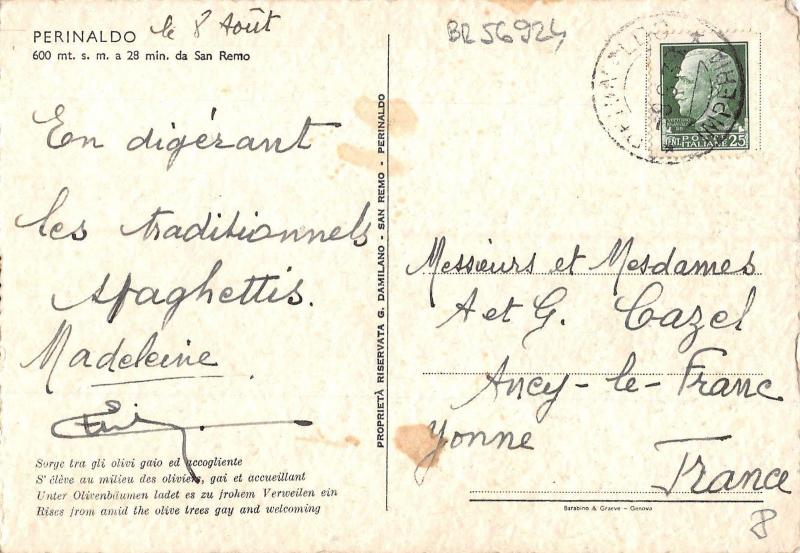 PERINALDO le 8 Août
600 mt. s. m. a 28 min. da San Remo
BR56924
En digérant
les traditionnels
spaghettis.
Madeleine
Sorge tra gli olivi gaio ed accogliente
S' élève au milieu des oliviers, gai et accueillant
Unter Olivenbäumen ladet es zu frohem Verweilen ein
Rises from amid the olive trees gay and welcoming
PROPRIETÀ RISERVATA G. DAMILANO - SAN REMO - PERINALDO
PERINALDO
IMPERIA
POSTE
ITALIANE
CENT. 25
Messieurs et Mesdames
A et G. Cazel
Ancy-le-Franc
Yonne
France
Barabino & Graeve - Genova
8